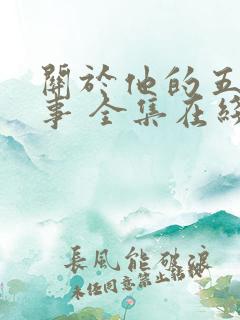 關於他的五
事 全集在綫
長風能破浪
未任同意禁止転載